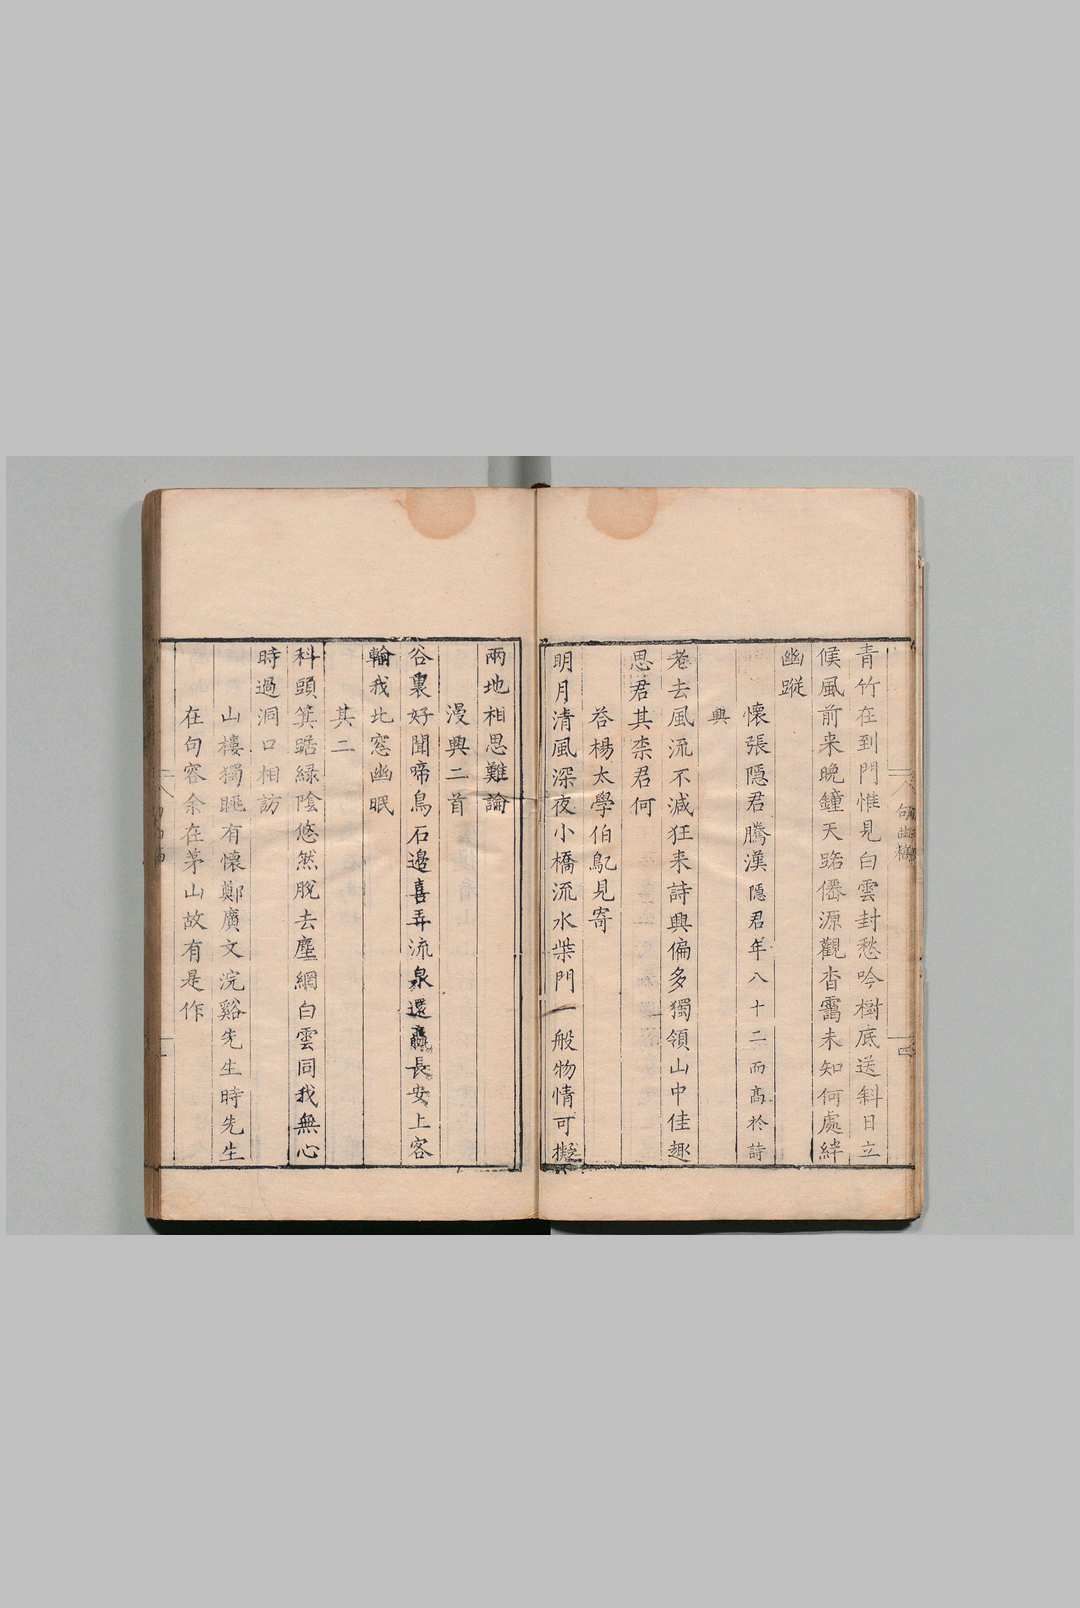 青竹在到門惟見白雲封愁吟樹底送斜日立
候風前来晚鐘天路僊源觀杳靄未知何處緯
幽蹤
懷張隱君騰漢隱君年八十二而髙於詩
興
老去風流不減狂来詩興偏多獨領山中佳趣
思君其柰君何
答楊太學伯鳦見寄
明月清風深夜小橋流水柴門一般物情可擬
兩地相思難論
漫興二首
谷裏好聞啼鳥石邉喜弄流泉還羸長安上客
輸我北窓幽眠
其二
科頭箕踞緑陰悠然脫去塵網白雲同我無心
時過洞口相訪
山樓獨眺有懷鄭廣文浣谿先生時先生
在句容余在茅山故有是作
句曲稿
四